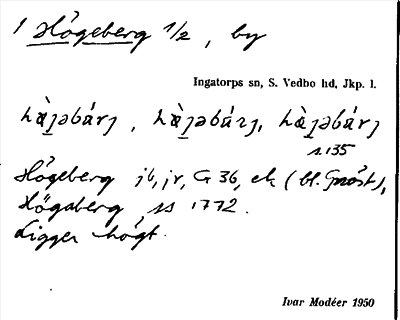 1 Högeberg 1/2, by
Ingatorps sn, S. Vedbo hd, Jkp. l.
hàjəbárj, hàjəbárj, hàjəbárj
s. 135
Högeberg jb, jr, G 36, ek (bl. Gnöst),
Högaberg ss 1772.
Ligger högt.
Ivar Modéer 1950